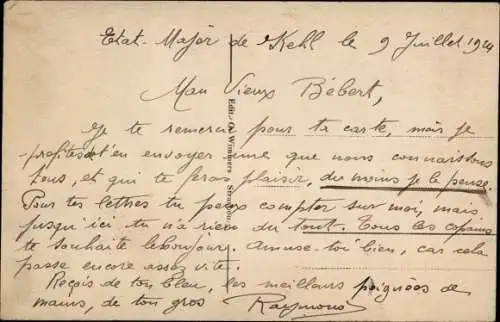 Etat-Major de Kehl le 9 Juillet 1924
Mon Vieux Bébert,
Je te remercie pour ta carte, mais je
profites de t'en envoyer une que nous connaissons
tous, et qui te fera plaisir, du moins je le pense.
Pour tes lettres tu peux compter sur moi, mais
jusqu'ici tu n'a rien du tout. Tous les copains
te souhaite le bonjour. Amuse-toi bien, car cela
passe encore assez vite.
Reçois de ton bleu, les meilleurs poignées de
mains, de ton gros Raymond
Edit.: G. Wimmers, Strasbourg